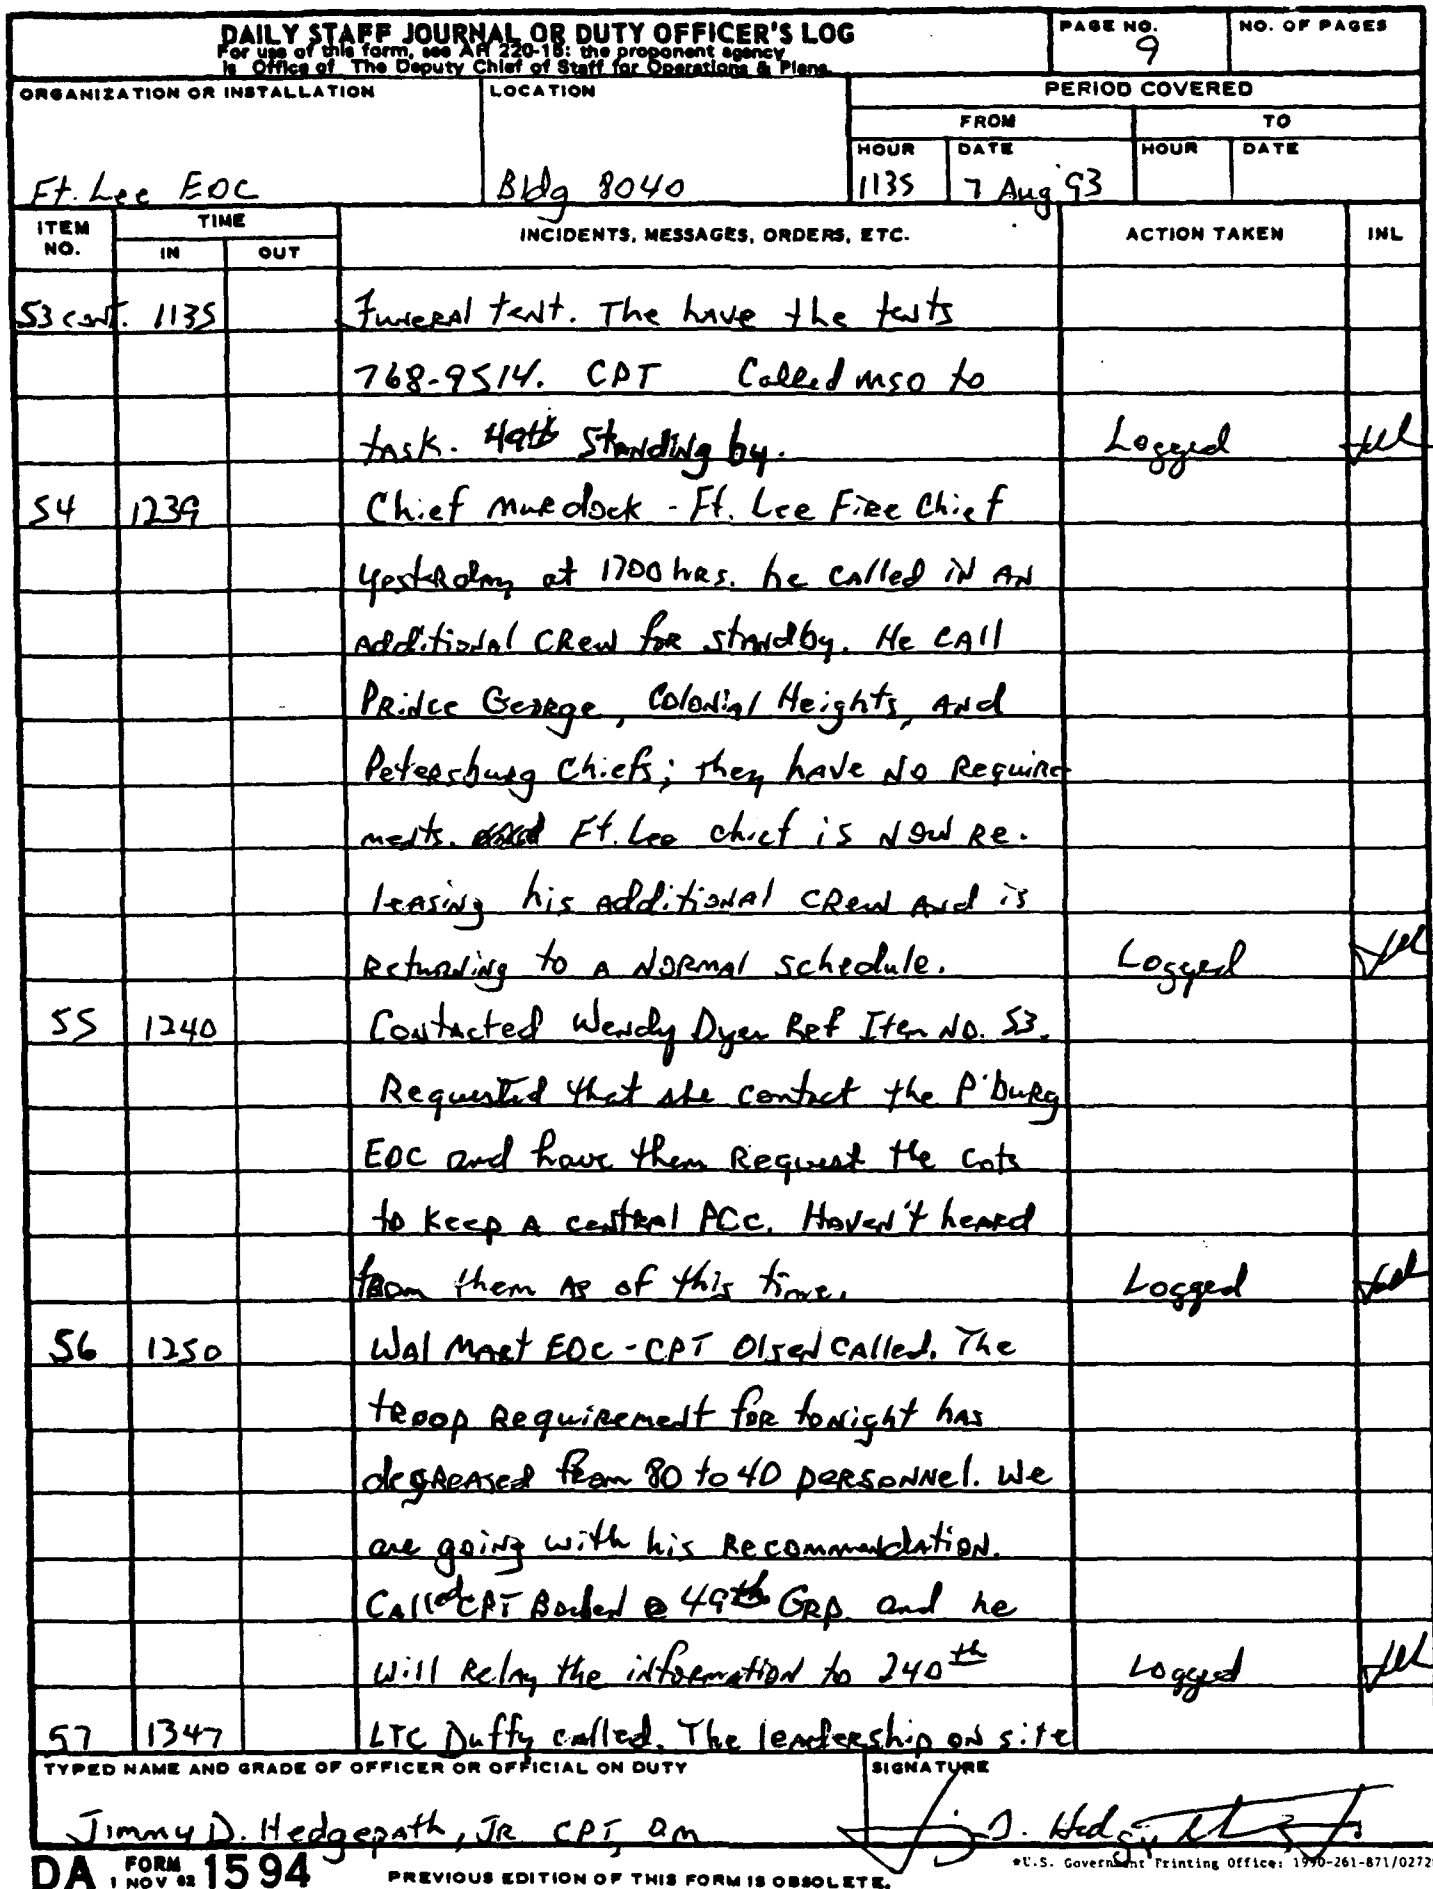 DAILY STAFF JOURNAL OR DUTY OFFICER'S LOG
For use of this form, see AR 220-15; the proponent agency
is Office of The Deputy Chief of Staff for Operations & Plans.
PAGE NO.
9
NO. OF PAGES
ORGANIZATION OR INSTALLATION
Ft. Lee EOC
LOCATION
Bldg 8040
PERIOD COVERED
FROM
TO
HOUR
DATE
HOUR
DATE
1135
7 Aug 93
ITEM NO.
TIME
IN
OUT
INCIDENTS, MESSAGES, ORDERS, ETC.
ACTION TAKEN
INL
53 cont. 1135 Funeral tent. The have the tents
768-9514. CPT Called MSO to
task. 49th Standing by. Logged
54 1239 Chief Murdock - Ft. Lee Fire Chief
yesterday at 1700 hrs. he called in an
additional crew for standby. He call
Prince George, Colonial Heights, and
Petersburg Chiefs; they have no require-
ments. Ft. Lee chief is now re-
leasing his additional crew and is
returning to a normal schedule. Logged
55 1240 Contacted Wendy Dyer Ref Item No. 53.
Requested that she contact the P'burg
EOC and have them request the cots
to keep a central POC. Haven't heard
from them as of this time. Logged
56 1250 Wal Mart EOC - CPT Olsen called. The
troop requirement for tonight has
degreased from 80 to 40 personnel. We
are going with his recommendation.
Called CPT @ 49th Grp. and he
will relay the information to 240th Logged
57 1347 LTC Duffy called. The leadership on site
TYPED NAME AND GRADE OF OFFICER OR OFFICIAL ON DUTY
Jimmy D. Hedgepath, JR CPT, QM
SIGNATURE
DA FORM 1 NOV 62 1594
PREVIOUS EDITION OF THIS FORM IS OBSOLETE.
*U.S. Government Printing Office: 1990-261-871/0272